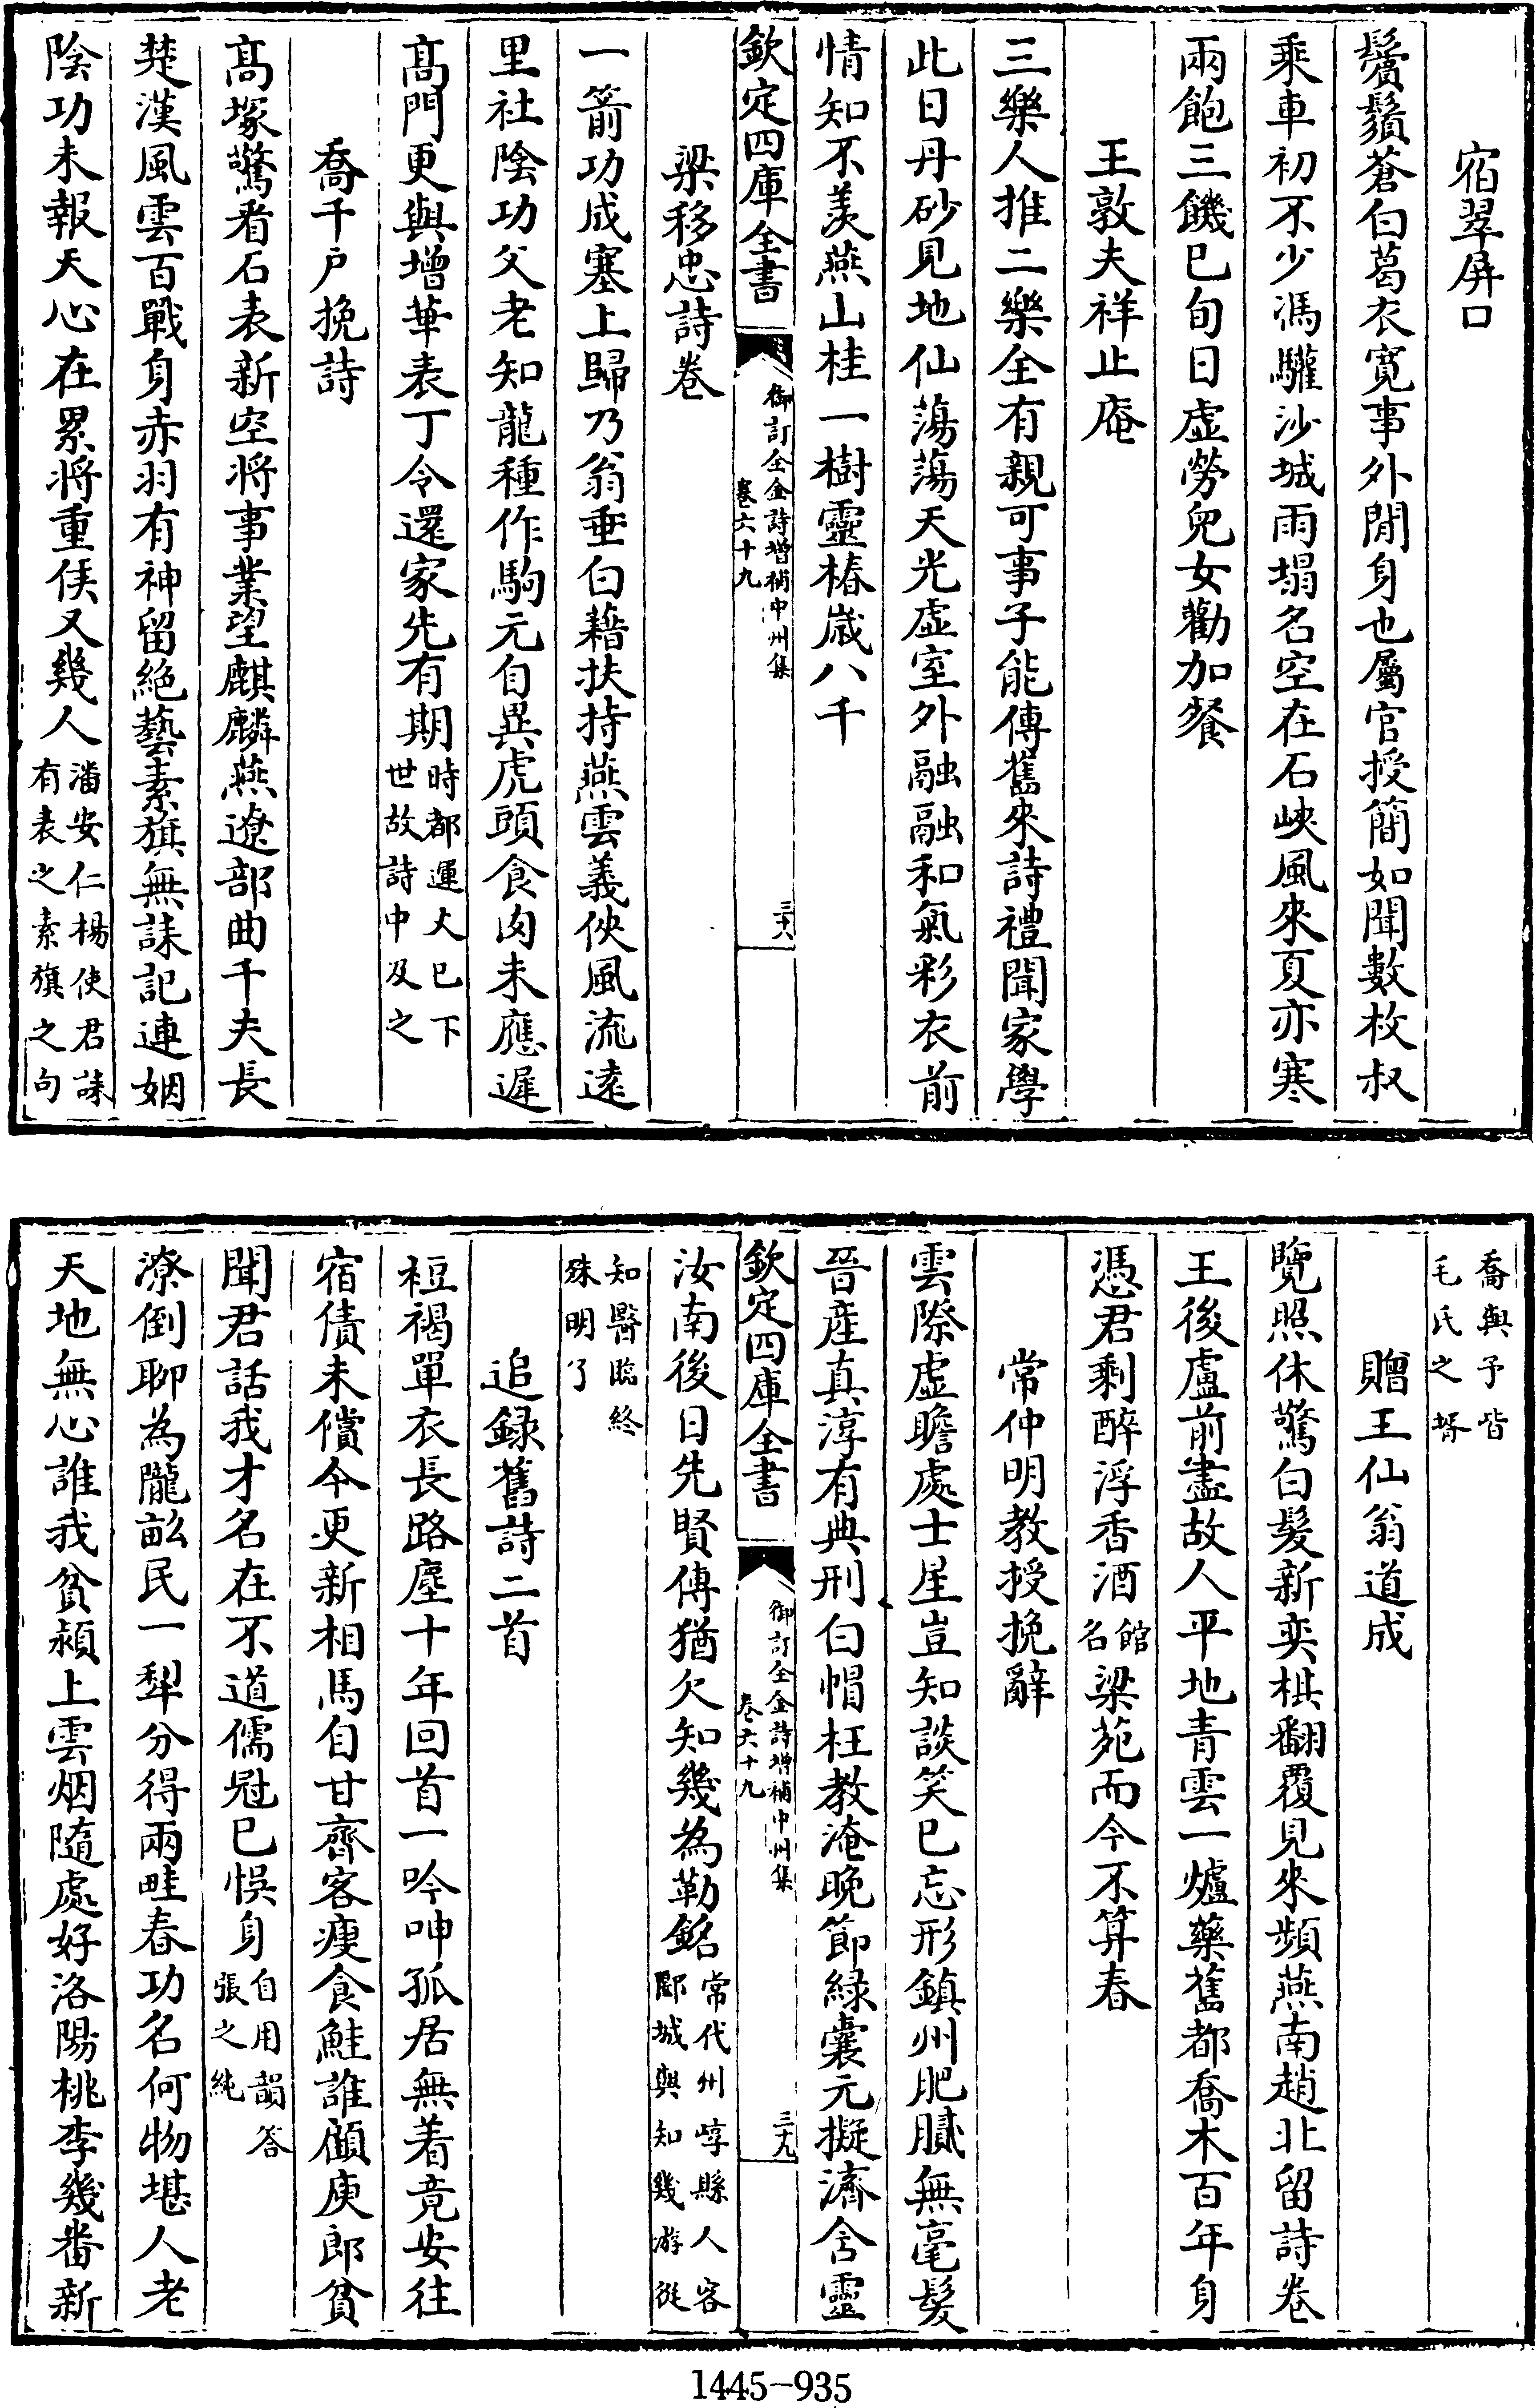 宿翠屏口
鬢鬚蒼白葛衣寛事外閒身也屬官授簡如聞數枚叔
乘車初不少馮驩沙城雨塌名空在石峽風來夏亦寒
兩飽三饑已旬日虚勞兒女勸加餐
王敦夫祥止庵
三樂人推二樂全有親可事子能傳舊來詩禮聞家學
此日丹砂見地仙蕩蕩天光虚室外融融和氣彩衣前
情知不羡燕山桂一樹靈椿嵗八千
欽定四庫全書
御訂全金詩增補中州集
卷六十九
三十八
梁移忠詩卷
一箭功成塞上歸乃翁垂白藉扶持燕雲義俠風流逺
里社陰功父老知龍種作駒元自異虎頭食肉未應遲
髙門更與增華表丁令還家先有期
時都運丈已下
世故詩中及之
喬千戸挽詩
髙塚驚看石表新空将事業望麒麟燕遼部曲千夫長
楚漢風雲百戰身赤羽有神留絶藝素旗無誄記連姻
陰功未報天心在累将重侯又幾人
潘安仁楊使君誄
有表之素旗之句
喬與予皆
毛氏之壻
贈王仙翁道成
覽照休驚白髮新奕棋翻覆見來頻燕南趙北留詩卷
王後盧前盡故人平地青雲一爐藥舊都喬木百年身
憑君剩醉浮香酒
館
名
梁苑而今不算春
常仲明教授挽辭
雲際虚瞻處士星豈知談笑已忘形鎮州肥膩無毫髮
晉産真淳有典刑白帽枉教淹晚節緑囊元擬濟含靈
欽定四庫全書
御訂全金詩增補中州集
卷六十九
三十九
汝南後日先賢傳猶欠知幾為勒銘
常代州崞縣人客
郾城與知幾游從
知醫臨終
殊明了
追録舊詩二首
裋褐單衣長路塵十年回首一吟呻孤居無着竟安往
宿債未償今更新相馬自甘齊客瘦食鮭誰顧庾郎貧
聞君話我才名在不道儒冠已悞身
自用韻答
張之純
潦倒聊為隴畝民一犂分得兩畦春功名何物堪人老
天地無心誰我貧潁上雲烟隨處好洛陽桃李幾番新
1445-935